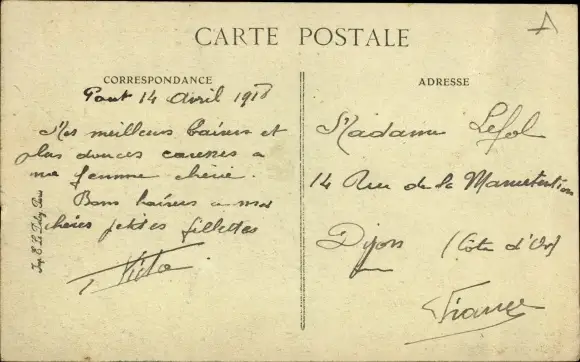 CARTE POSTALE
CORRESPONDANCE
14 Avril 1918
Mes meilleurs baisers et
plus douces caresses a
ma femme cherie.
Bons baisers a mes
chères petites fillettes
ADRESSE
Madame Lefol
14 Rue de la Manutention
Dijon (Côte d'Or)
France